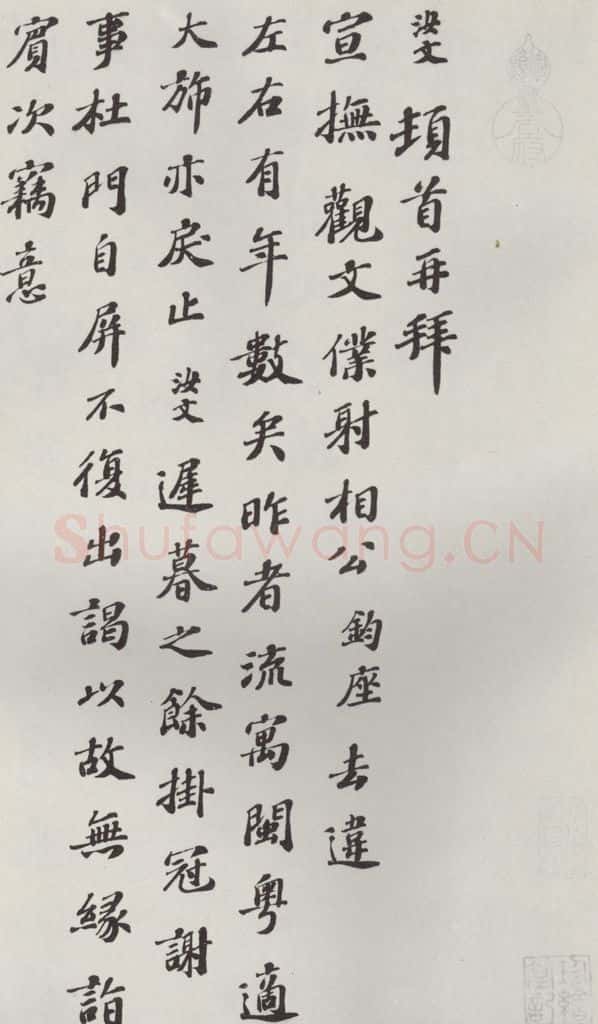 汝文頓首再拜
宣撫觀文僕射相公鈞座去違
左右有年數矣昨者流寓閩粤適
大斾亦戾止汝文遲暮之餘掛冠謝
事杜門自屏不復出謁以故無緣詣
賓次竊意
Shufawang.CN